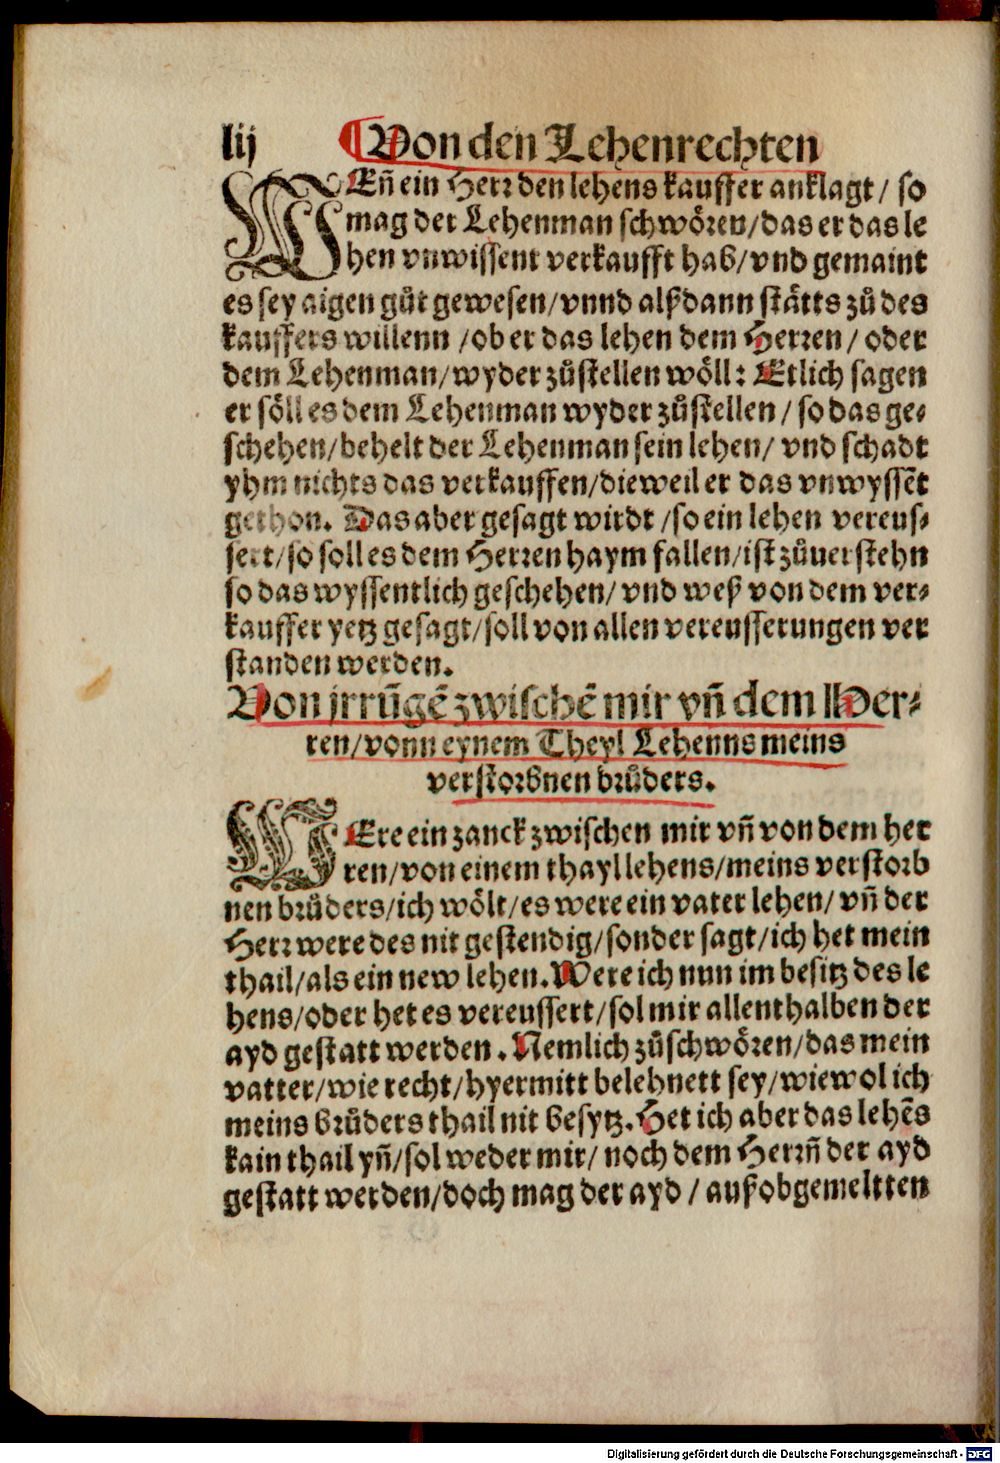 lij ¶Von den Lehenrechten
WEn̄ ein Herr den lehens kauffer anklagt/ so
mag der Lehenman schwören/das er das le
hen vnwissent verkaufft hab/vnd gemaint
es sey aigen gůt gewesen/vnnd alßdann stätts zů des
kauffers willenn /ob er das lehen dem Herren/ oder
dem Lehenman/wyder zůstellen wöll: Etlich sagen
er söll es dem Lehenman wyder zůstellen/ so das ge-
schehen/behelt der Lehenman sein lehen/ vnd schadt
yhm nichts das verkauffen/dieweil er das vnwyssēt
gethon. Das aber gesagt wirdt /so ein lehen vereus-
sert/so soll es dem Herren haym fallen/ist zůuerstehn
so das wyssentlich geschehen/ vnd weß von dem ver-
kauffer yetz gesagt/soll von allen vereusserungen ver
standen werden.
Von jrrūgē zwischē mir vn̄ dem Her-
ren/vonn eynem Theyl Lehenns meins
verstorbnen brůders.
WEre ein zanck zwischen mir vn̄ von dem her
ren/von einem thayl lehens/meins verstorb
nen brůders/ich wölt/es were ein vater lehen/ vn̄ der
Herr were des nit gestendig/sonder sagt/ich het mein
thail/als ein new lehen. Were ich nun im besitz des le
hens/oder het es vereussert/sol mir allenthalben der
ayd gestatt werden. Nemlich zůschwören/das mein
vatter/wie recht/hyermitt belehnett sey/wiewol ich
meins brůders thail nit besytz. Het ich aber das lehēs
kain thail yn̄/sol weder mir/ noch dem Herrn̄ der ayd
gestatt werden/doch mag der ayd / auß obgemeltten
Digitalisierung gefördert durch die Deutsche Forschungsgemeinschaft - DFG